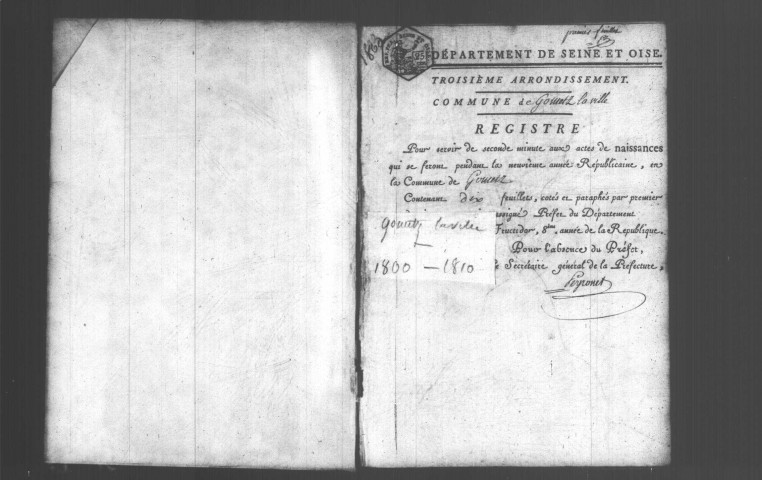 premier feuillet
1863
DÉPARTEMENT DE SEINE ET OISE.
TROISIÈME ARRONDISSEMENT.
COMMUNE de Gometz la ville
REGISTRE
Pour servir de seconde minute aux actes de naissances
qui se feront pendant la neuvième année Républicaine, en
la Commune de Gometz
Contenant dix feuillets, cotés et paraphés par premier
ssigné Préfet du Département
Fructidor, 8ème. année de la République.
Pour l'absence du Préfet,
e Secrétaire général de la Préfecture,
Peyronet
Gometz la ville
1800 — 1810